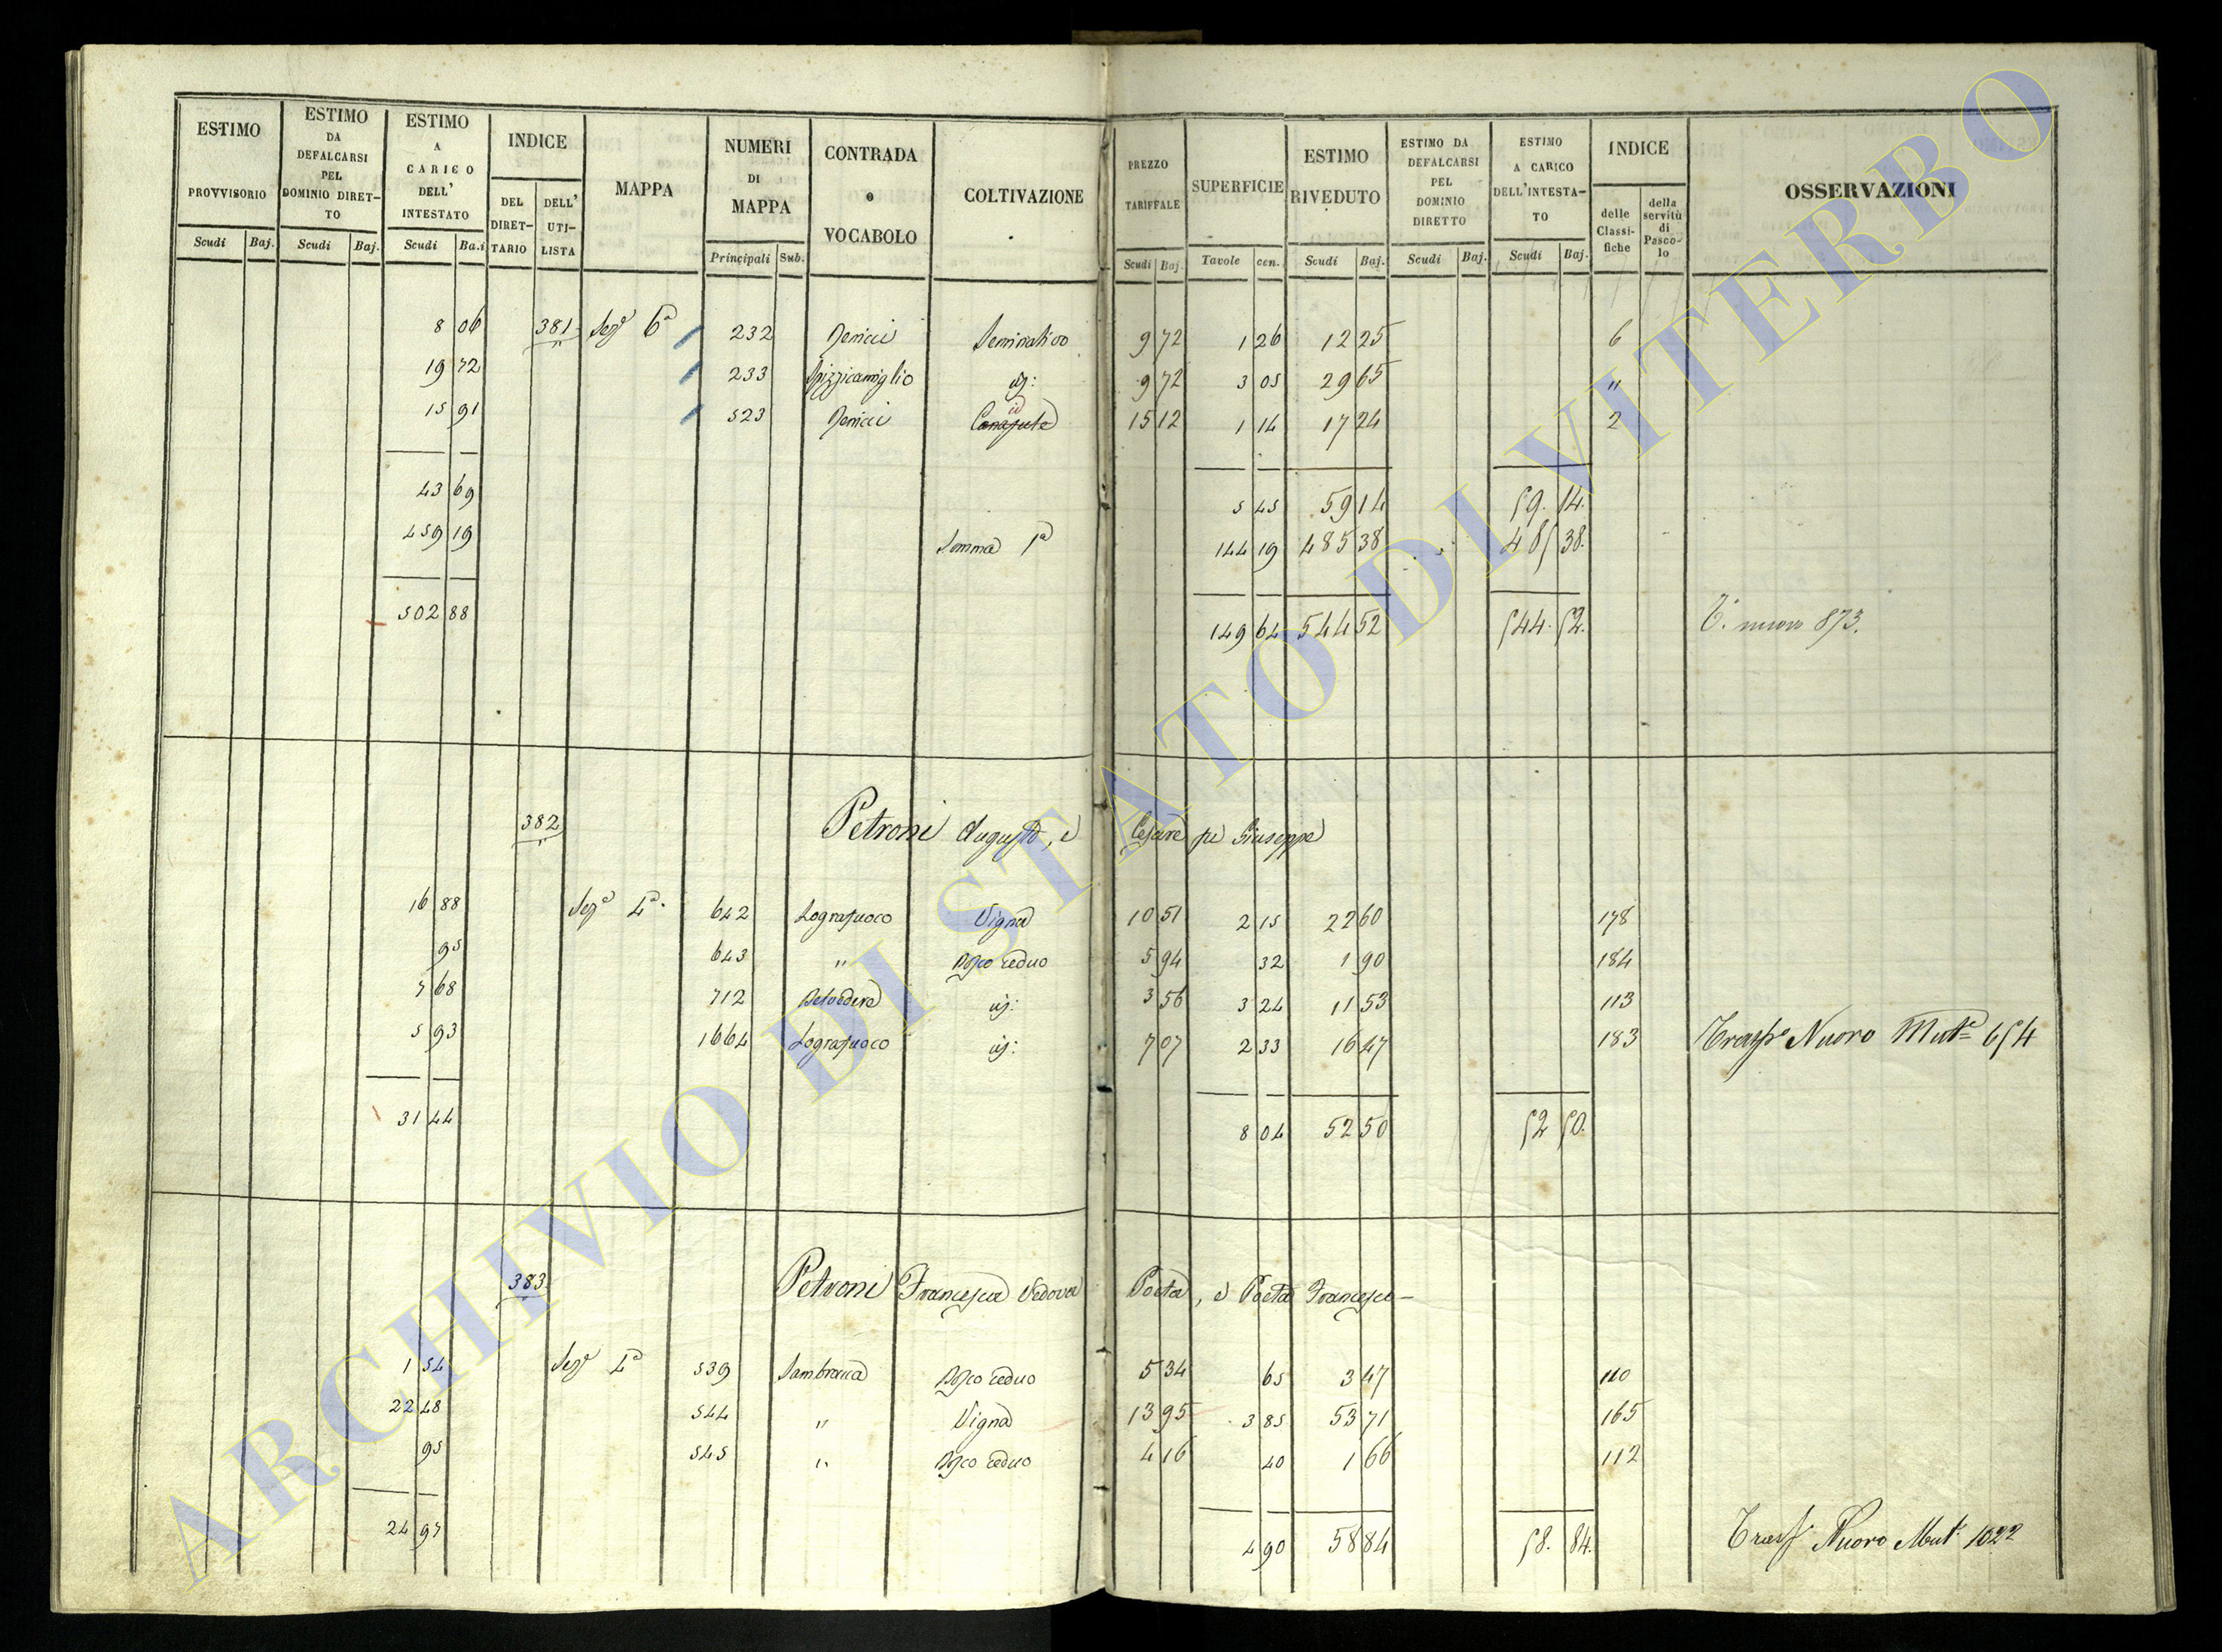 ESTIMO PROVVISORIO | ESTIMO DA DEFALCARSI PEL DOMINIO DIRETTO | ESTIMO A CARICO DELL' INTESTATO | INDICE | MAPPA | NUMERI DI MAPPA | CONTRADA o VOCABOLO | COLTIVAZIONE | PREZZO TARIFFALE | SUPERFICIE | ESTIMO RIVEDUTO | ESTIMO DA DEFALCARSI PEL DOMINIO DIRETTO | ESTIMO A CARICO DELL'INTESTATO | INDICE | OSSERVAZIONI
DEL DIRETTARIO | DELL' UTILISTA | delle Classifiche | della servitù di Pascolo
Scudi | Baj. | Scudi | Baj. | Scudi | Ba.i | Principali | Sub. | Scudi | Baj. | Tavole | cen. | Scudi | Baj. | Scudi | Baj. | Scudi | Baj.
8 06 381 Sezᵉ 6ª 232 Seminativo 9 72 1 26 12 25 6
19 72 233 Spizzicamiglio id: 9 72 3 05 29 65 "
15 91 523 id 15 12 1 14 17 24 2
43 69 5 45 59 14 59. 14.
459 19 Somma 1ª 144 19 485 38 485 38.
502 88 149 64 544 52 544. 52. T. nuovo 873.
382 Petroni Augusto, e Cesare fu Giuseppe
16 88 Sezᵉ 4ª. 642 Lografuoco Vigna 10 51 2 15 22 60 178
95 643 " Bosco ceduo 5 94 32 1 90 184
7 68 712 Belvedere id: 3 56 3 24 11 53 113
5 93 1664 Lografuoco id: 7 07 2 33 16 47 183 Trasp° Nuovo Mutᵉ 654
31 44 8 04 52 50 52 50.
383 Petroni Francesca Vedova Poeta, e Poeta Francesco
1 54 Sezᵉ 4ª 539 Sambrocca Bosco ceduo 5 34 65 3 47 110
22 48 544 " Vigna 13 95 3 85 53 71 165
95 545 " Bosco ceduo 4 16 40 1 66 112
24 97 4 90 58 84 58. 84. Trasp° Nuovo Mutᵉ 1022
ARCHIVIO DI STATO DI VITERBO